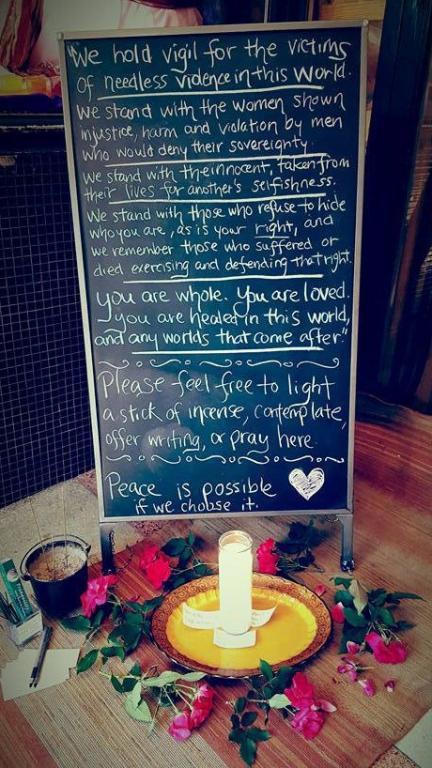 "We hold vigil for the victims
of needless violence in this world.
We stand with the women shown
injustice, harm and violation by men
who would deny their sovereignty.
We stand with the innocent, taken from
their lives for another's selfishness.
We stand with those who refuse to hide
who you are, as is your right, and
we remember those who suffered or
died exercising and defending that right.
You are whole. You are loved.
You are healed in this world,
and any worlds that come after."
Please feel free to light
a stick of incense, contemplate,
offer writing, or pray here.
Peace is possible
if we choose it.